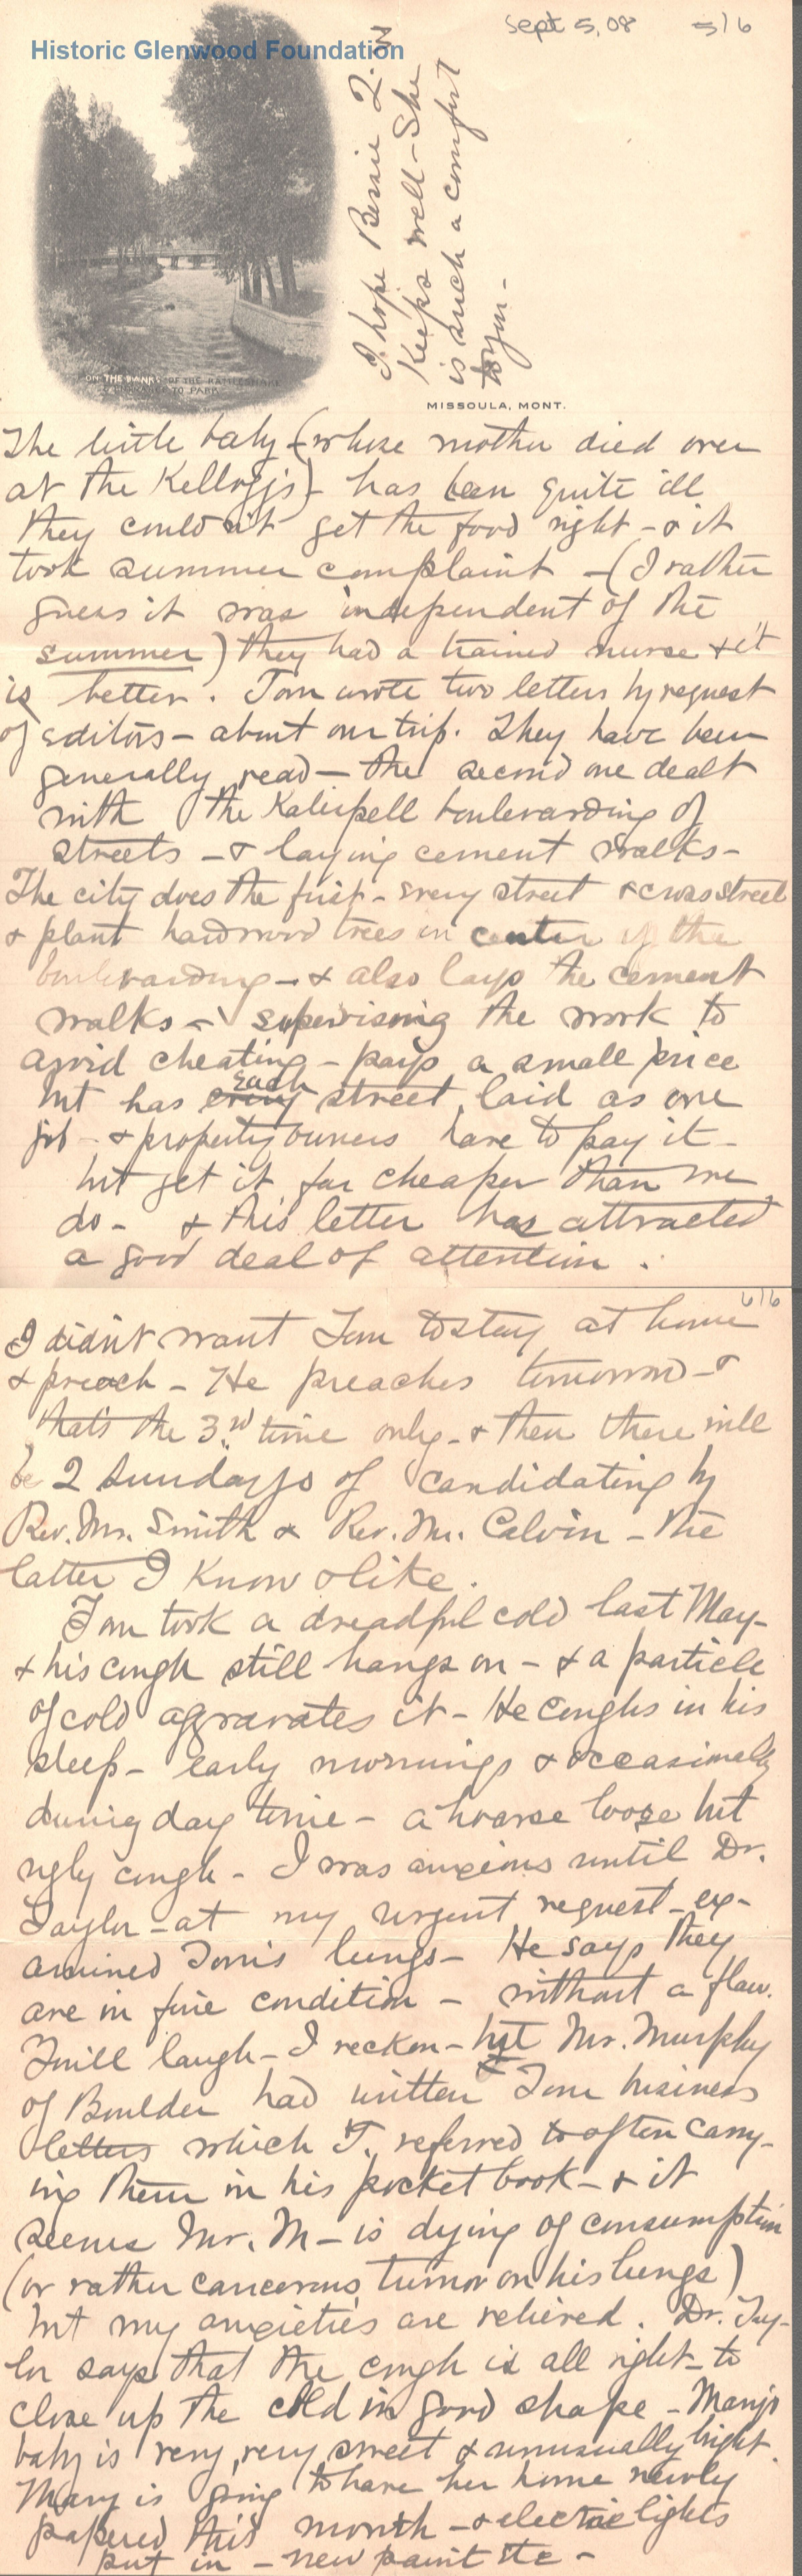 Historic Glenwood Foundation
Sept 5, 08 5/6
I hope Bessie Z. W
keeps well - She
is such a comfort
to you -
ON THE BANKS OF THE RATTLESNAKE
TO PARK
MISSOULA, MONT.
The little baby - (whose mother died over
at the Kelloggs) - has been quite ill
they couldn't get the food right - & it
took summer complaint - (I rather
guess it was independent of the
summer) they had a trained nurse & it
is better. Tom wrote two letters by request
of editors - about our trip. They have been
generally read - the second one dealt
with the Kalispell boulevarding of
streets - & laying cement walks -
The city does the first - every street & cross street
& plant hardwood trees in center of the
boulevarding - & also lays the cement
walks - supervising the work to
avoid cheating - pays a small price
but has every each street laid as one
job - & property owners have to pay it -
but get it far cheaper than we
do - & this letter has attracted
a good deal of attention.
6/6
I didn't want Tom to stay at home
& preach - He preaches tomorrow - &
that's the 3rd time only - & then there will
be 2 Sundays of candidating by
Rev. Mr. Smith & Rev. Mr. Calvin - the
latter I know & like.
Tom took a dreadful cold last May -
& his cough still hangs on - & a particle
of cold aggravates it - He coughs in his
sleep - early mornings & occasionally
during day time - a hoarse loose but
ugly cough - I was anxious until Dr.
Taylor - at my urgent request - ex-
amined Tom's lungs - He says they
are in fine condition - without a flaw.
I will laugh - I reckon - but Mr. Murphy
of Boulder had written Tom business
letters which T. referred to often carry-
ing them in his pocket book - & it
seems Mr. M - is dying of consumption
(or rather cancerous tumor on his lungs)
but my anxieties are relieved. Dr. Tay-
lor says that the cough is all right - to
close up the cold in good shape - Mary's
baby is very, very sweet & unusually bright.
Mary is going to have her home newly
papered this month - & electric lights
put in - new paint etc -